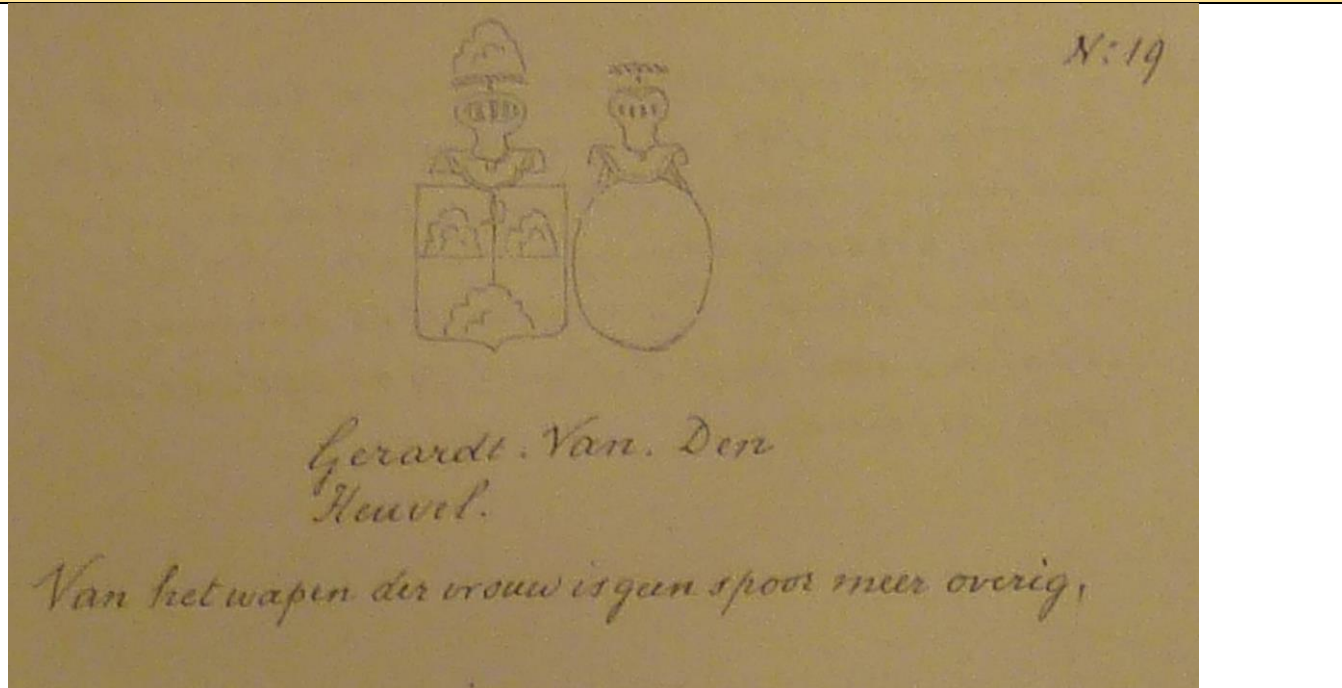 N: 19
Gerardt. Van. Den
Heuvel.
Van het wapen der vrouw is geen spoor meer overig,